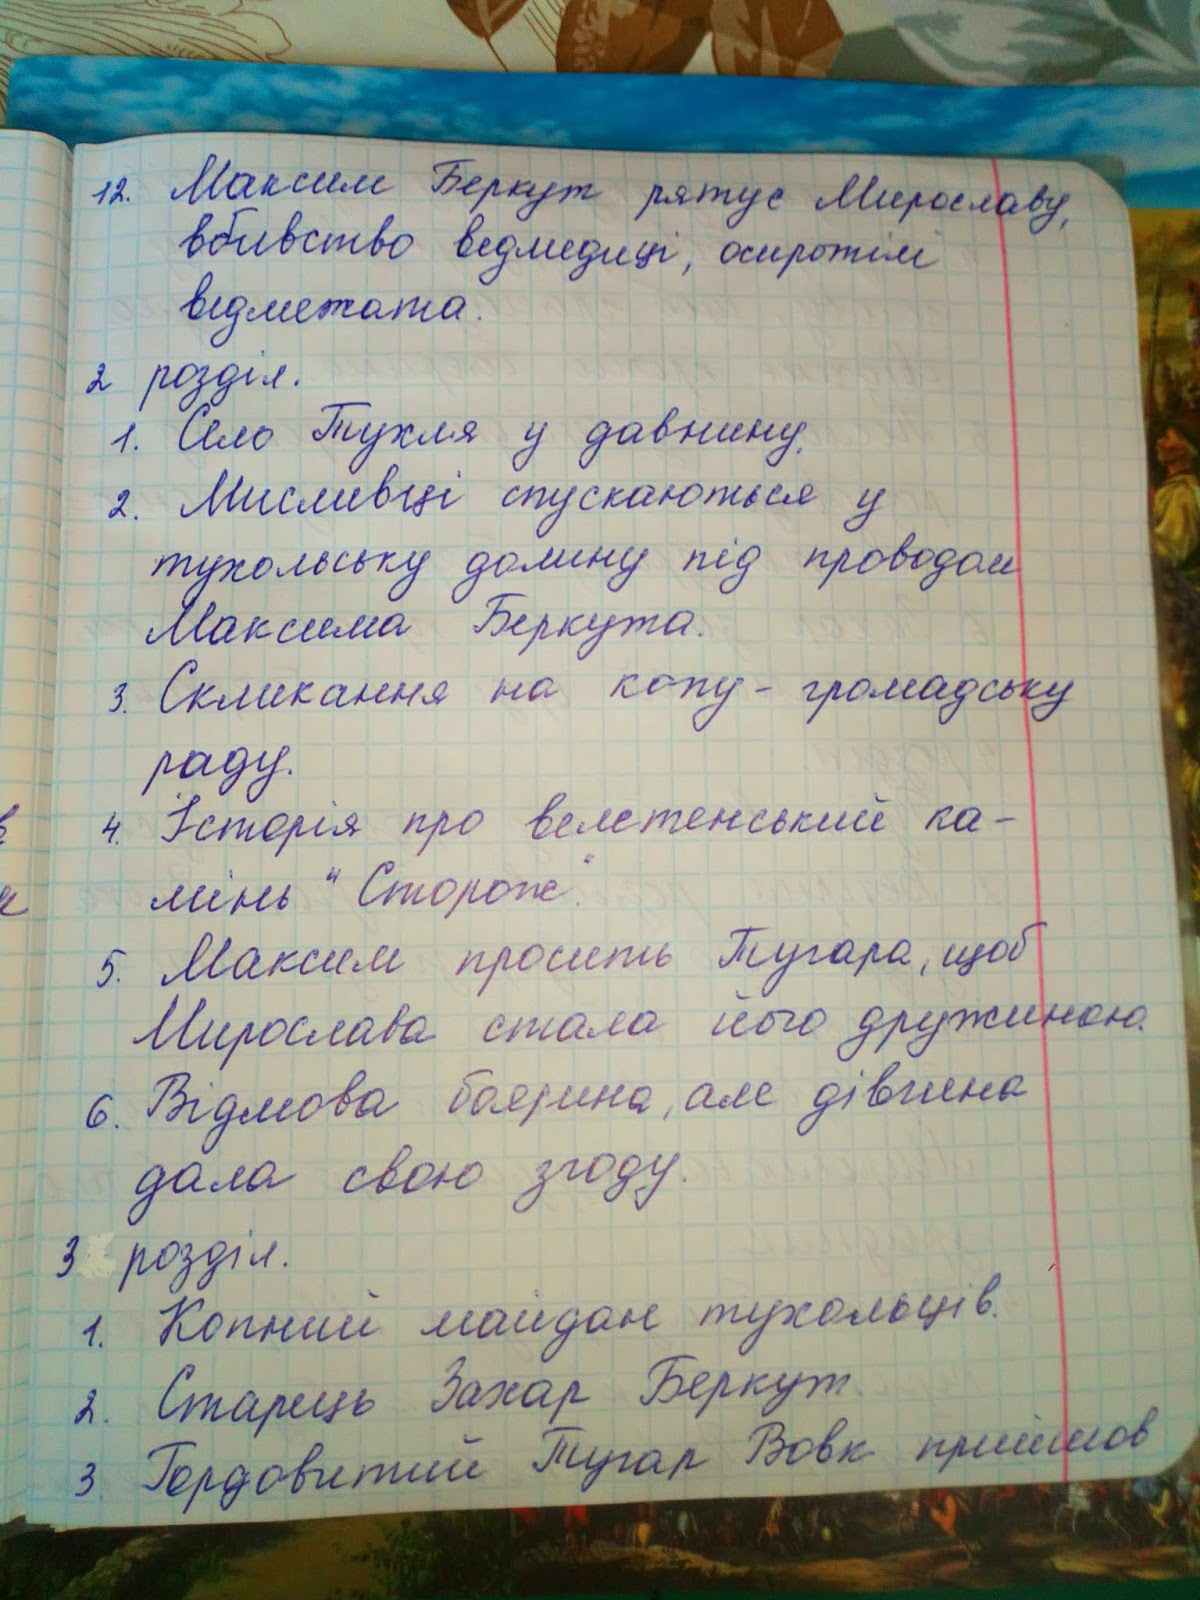 12. Максим Беркут рятує Мирославу,
вбивство ведмедиці, осиротілі
ведмежата.
2 розділ.
1. Село Тухля у давнину.
2. Мисливці спускаються у
тухольську долину під проводом
Максима Беркута.
3. Скликання на копу - громадську
раду.
4. Історія про велетенський ка-
мінь "Сторож".
5. Максим просить Тугара, щоб
Мирослава стала його дружиною.
6. Відмова боярина, але дівчина
дала свою згоду.
3 розділ.
1. Копний майдан тухольців.
2. Старець Захар Беркут.
3. Гордовитий Тугар Вовк прийшов